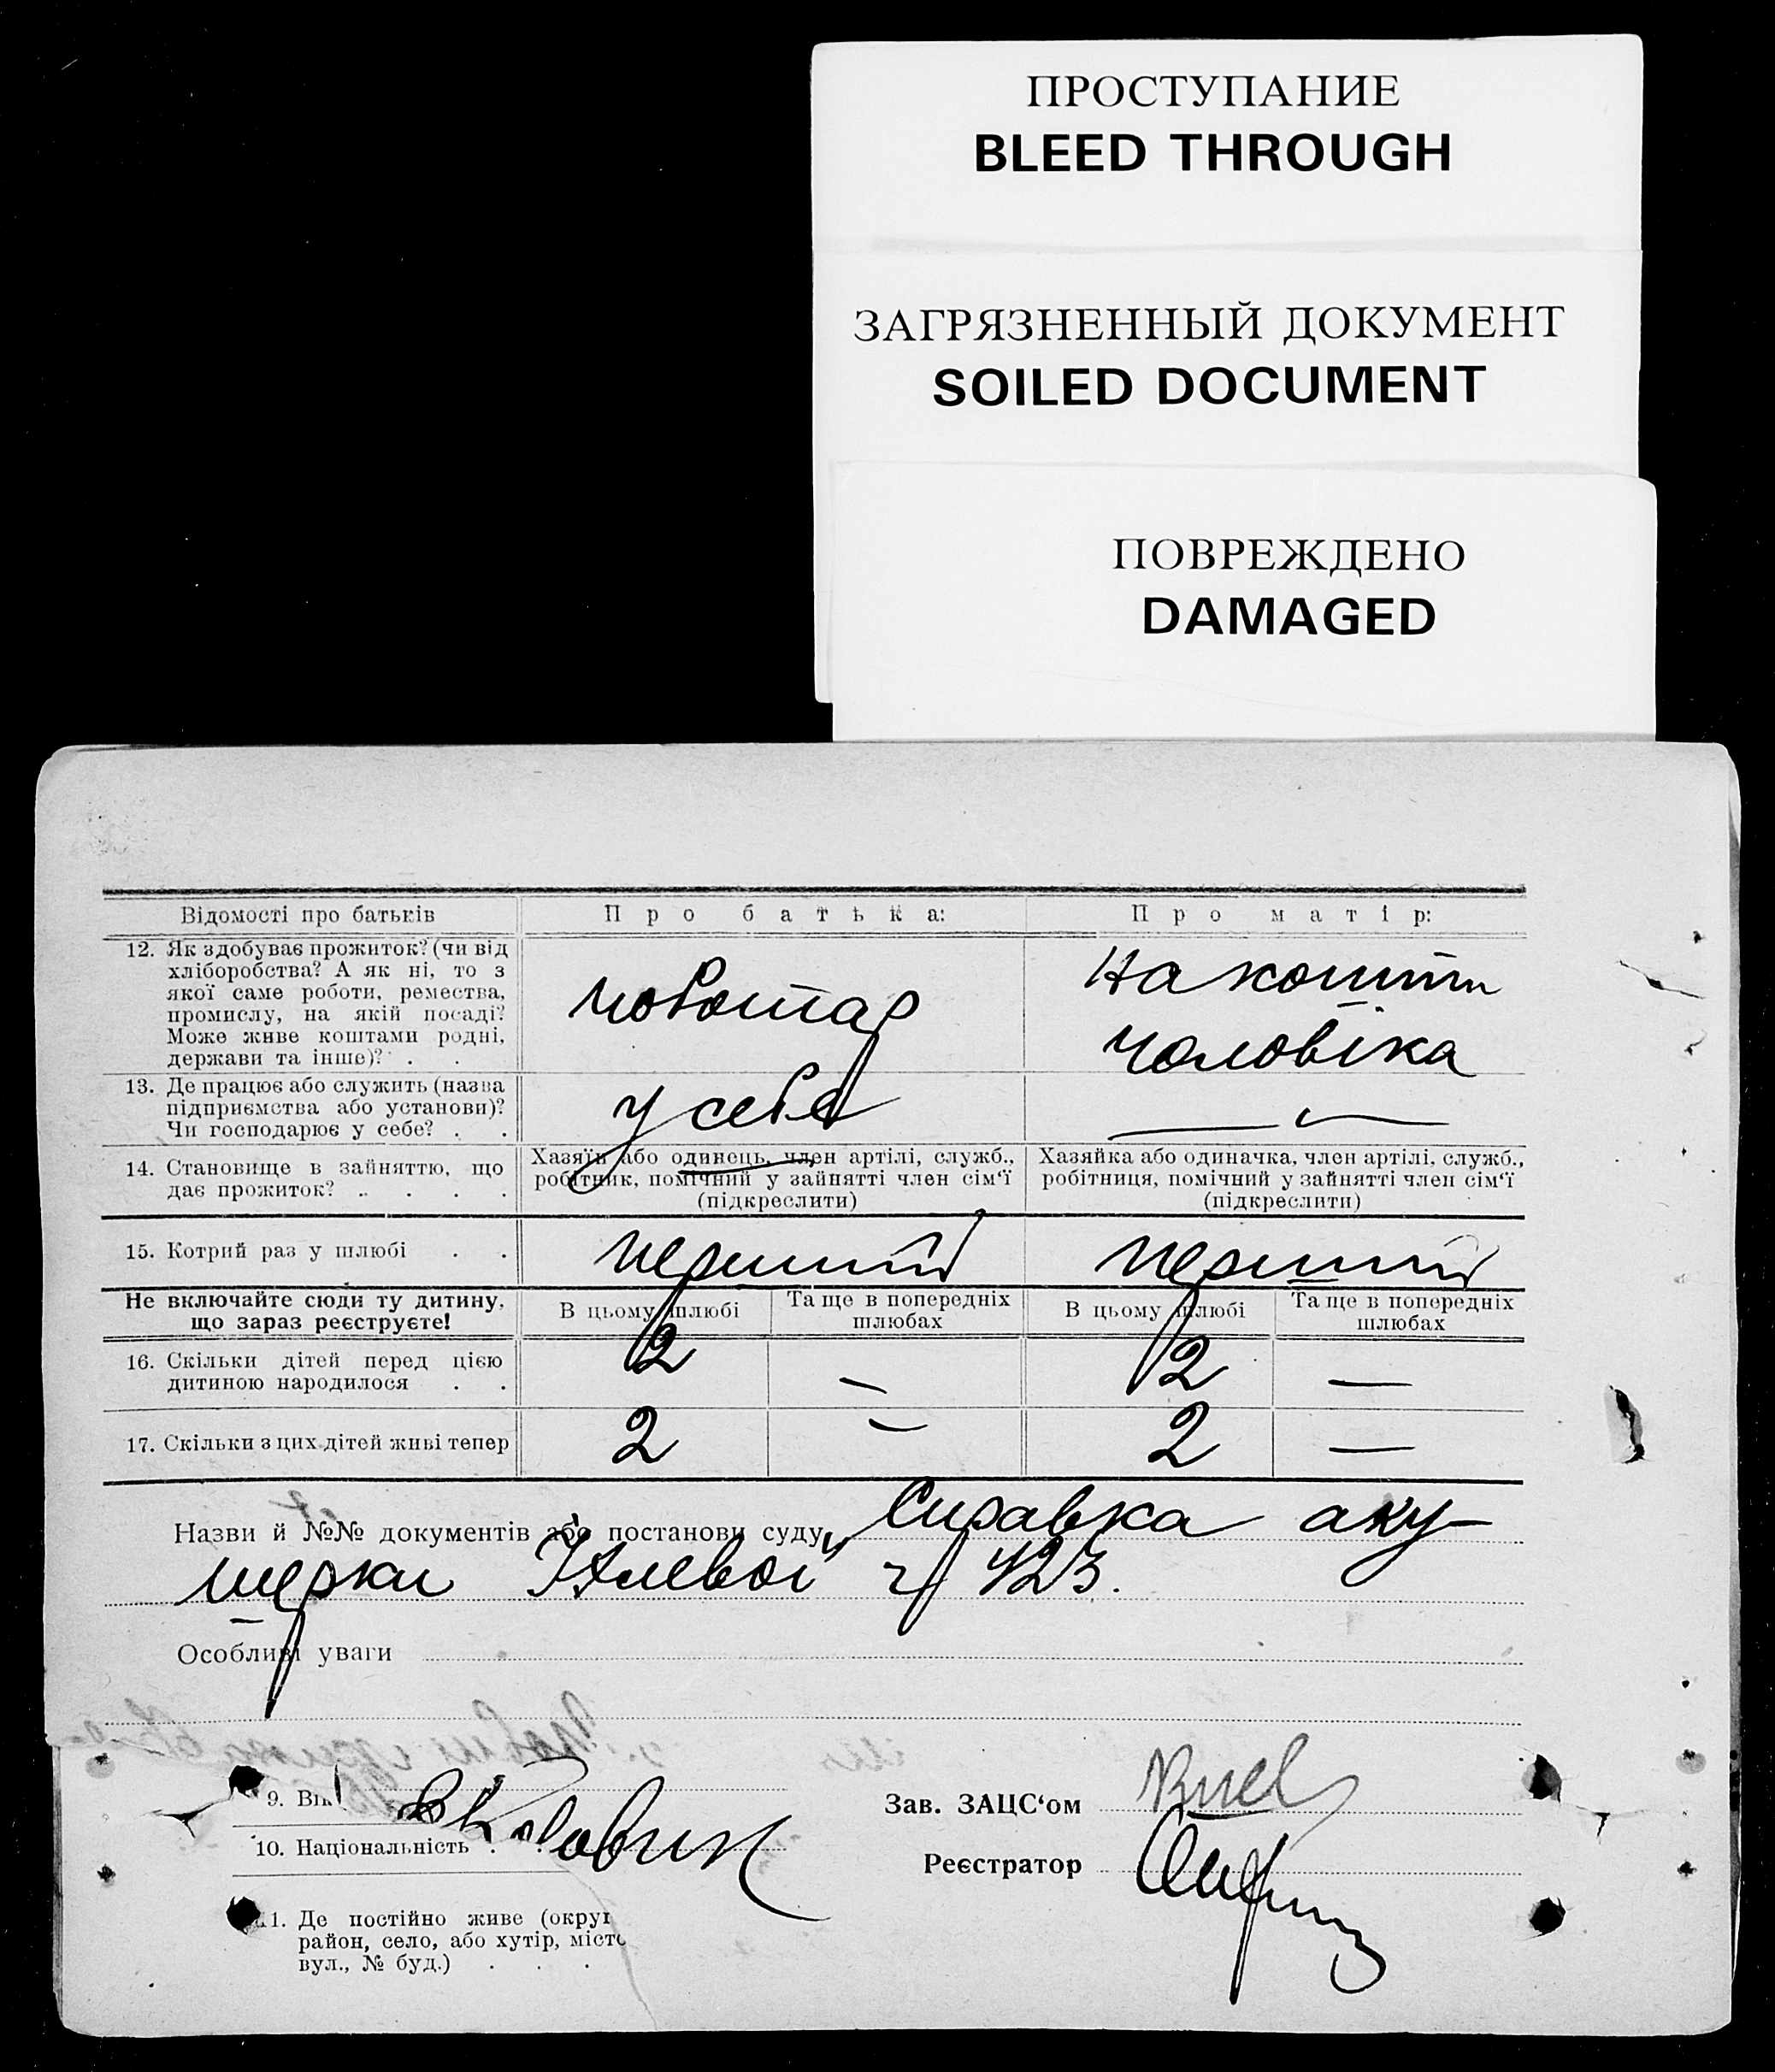 ПРОСТУПАНИЕ
BLEED THROUGH
ЗАГРЯЗНЕННЫЙ ДОКУМЕНТ
SOILED DOCUMENT
ПОВРЕЖДЕНО
DAMAGED
Відомості про батьків
Про батька:
Про матір:
12. Як здобуває прожиток? (чи від
хліборобства? А як ні, то з
якої саме роботи, ремества,
промислу, на якій посаді?
Може живе коштами родні,
держави та інше)? . .
чоботар
На кошти
чоловіка
13. Де працює або служить (назва
підприємства або установи)?
Чи господарює у себе? . .
у себе
—
14. Становище в зайняттю, що
дає прожиток? . . . .
Хазяїн або одинець, член артілі, служб.,
робітник, помічний у зайнятті член сім‘ї
(підкреслити)
Хазяйка або одиначка, член артілі, служб.,
робітниця, помічний у зайнятті член сім‘ї
(підкреслити)
15. Котрий раз у шлюбі . .
перший
перший
Не включайте сюди ту дитину,
що зараз реєструєте!
В цьому шлюбі
Та ще в попередніх
шлюбах
В цьому шлюбі
Та ще в попередніх
шлюбах
16. Скільки дітей перед цією
дитиною народилося . .
2 — 2 —
17. Скільки з цих дітей живі тепер
2 — 2 —
Назви й №№ документів або постанови суду Справка аку-
шерки ч 423.
Особливі уваги
9. Вік
Зав. ЗАЦС‘ом
10. Національність .
Реєстратор
11. Де постійно живе (округ
район, село, або хутір, місто
вул., № буд.) . . .